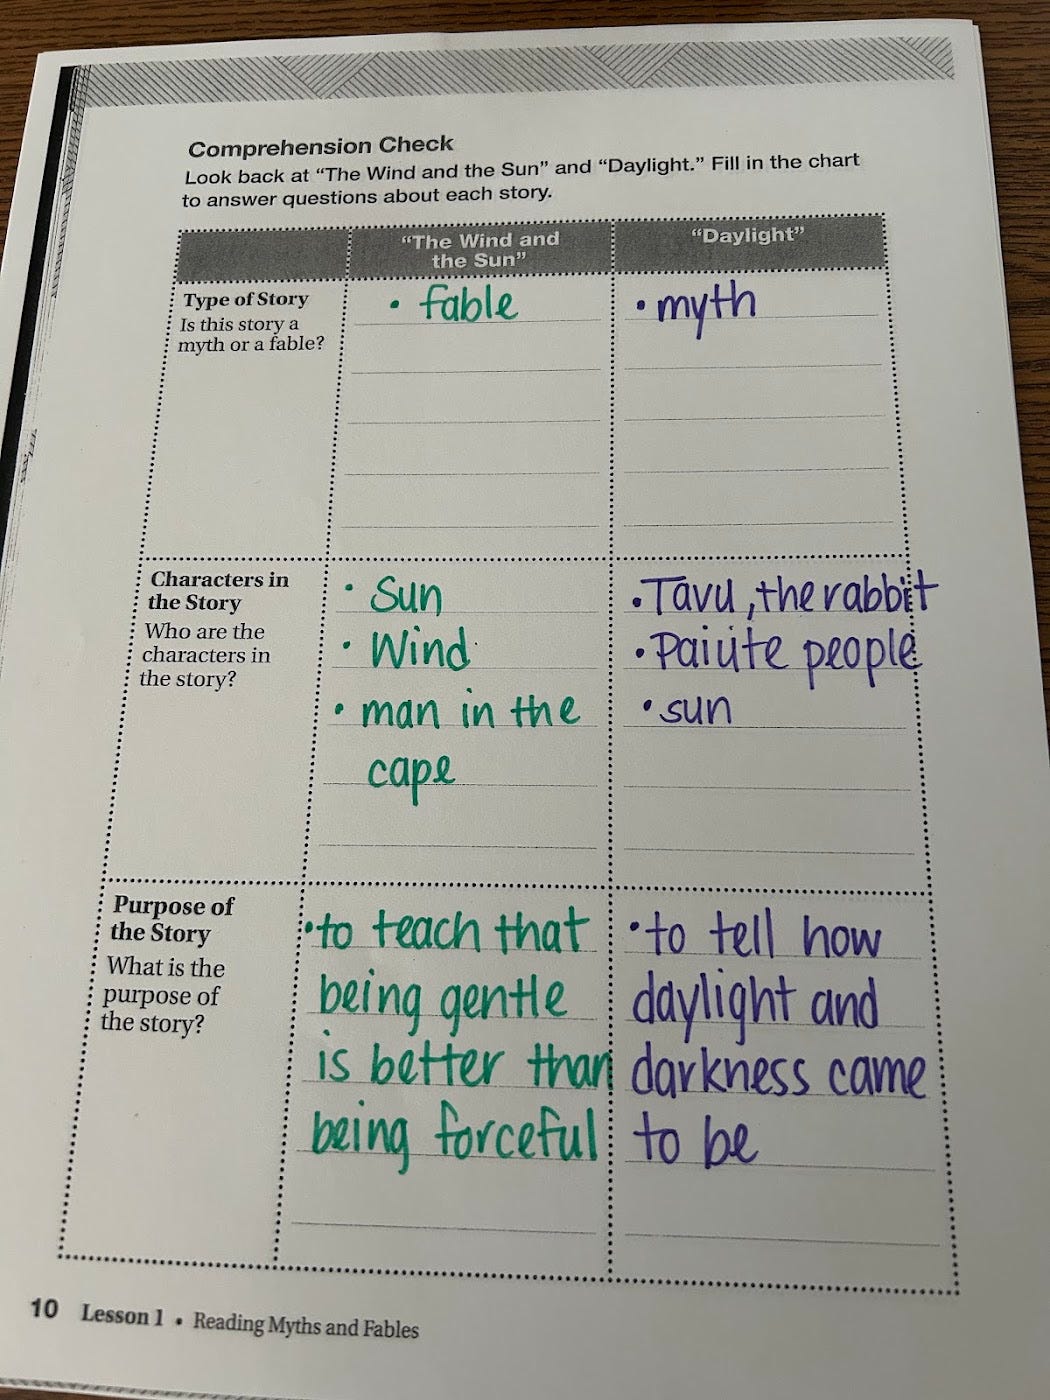 Comprehension Check
Look back at “The Wind and the Sun” and “Daylight.” Fill in the chart
to answer questions about each story.
“The Wind and
the Sun”
“Daylight”
Type of Story
Is this story a
myth or a fable?
• fable
• myth
Characters in
the Story
Who are the
characters in
the story?
• Sun
• Wind
• man in the
cape
• Tavu, the rabbit
• Paiute people
• sun
Purpose of
the Story
What is the
purpose of
the story?
• to teach that
being gentle
is better than
being forceful
• to tell how
daylight and
darkness came
to be
10 Lesson 1 • Reading Myths and Fables